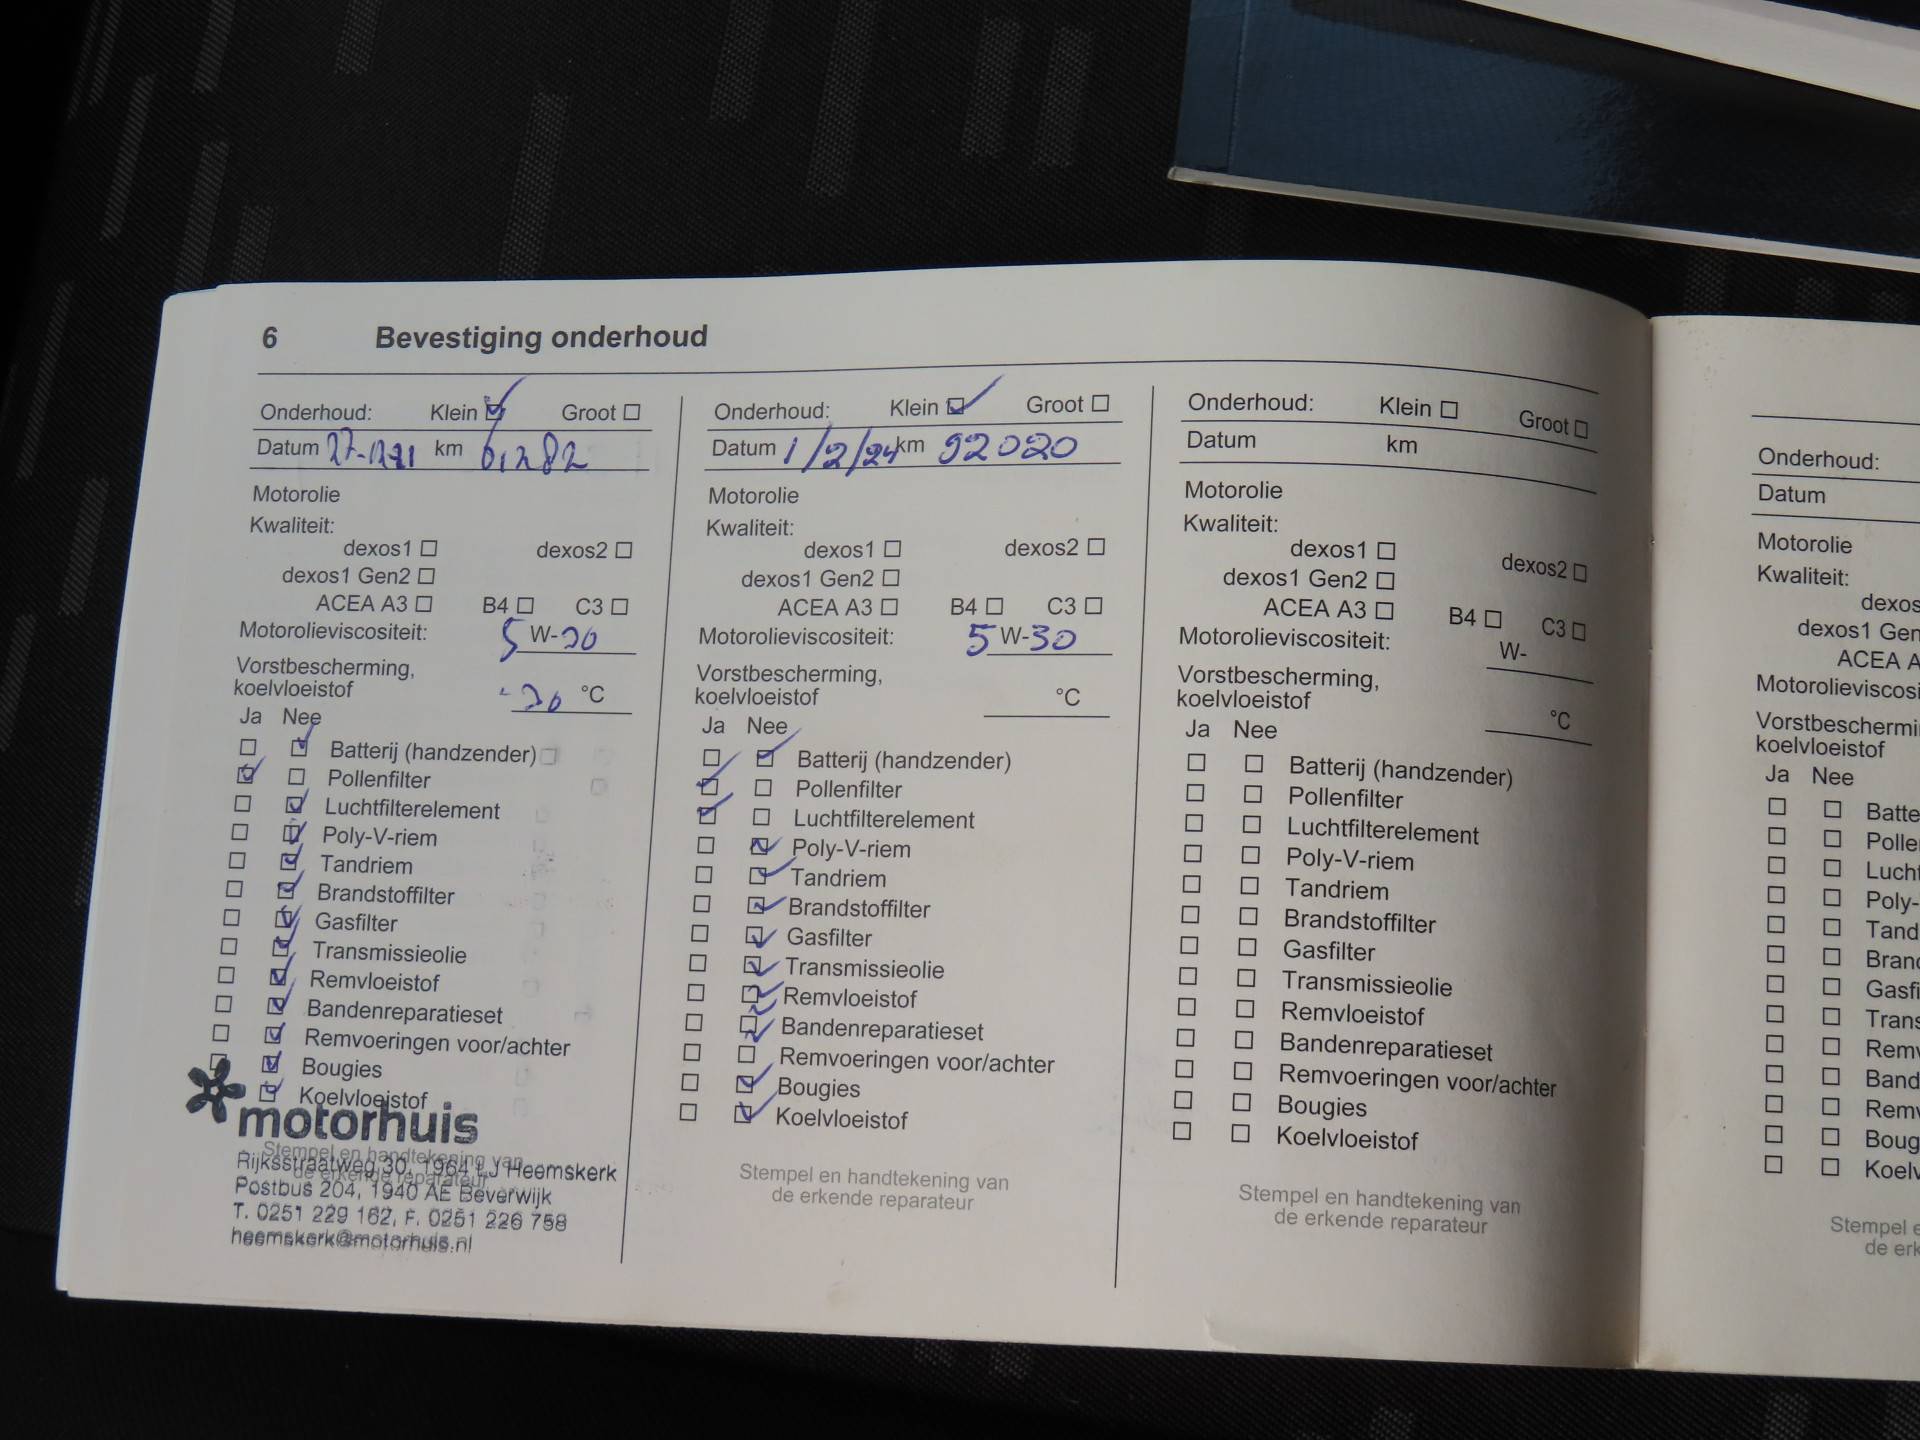 6 Bevestiging onderhoud
Onderhoud: Klein Groot
Datum 27-12-21 km 61282
Motorolie
Kwaliteit:
dexos1 dexos2
dexos1 Gen2
ACEA A3 B4 C3
Motorolieviscositeit: 5 W-20
Vorstbescherming,
koelvloeistof °C
Ja Nee
Batterij (handzender)
Pollenfilter
Luchtfilterelement
Poly-V-riem
Tandriem
Brandstoffilter
Gasfilter
Transmissieolie
Remvloeistof
Bandenreparatieset
Remvoeringen voor/achter
Bougies
Koelvloeistof
motorhuis
Stempel en handtekening van
de erkende reparateur
Rijksstraatweg 30, 1964 LJ Heemskerk
Postbus 204, 1940 AE Beverwijk
T. 0251 229 162, F. 0251 226 758
heemskerk@motorhuis.nl
Onderhoud: Klein Groot
Datum 1/2/24 km 92020
Motorolie
Kwaliteit:
dexos1 dexos2
dexos1 Gen2
ACEA A3 B4 C3
Motorolieviscositeit: 5 W-30
Vorstbescherming,
koelvloeistof °C
Ja Nee
Batterij (handzender)
Pollenfilter
Luchtfilterelement
Poly-V-riem
Tandriem
Brandstoffilter
Gasfilter
Transmissieolie
Remvloeistof
Bandenreparatieset
Remvoeringen voor/achter
Bougies
Koelvloeistof
Stempel en handtekening van
de erkende reparateur
Onderhoud: Klein Groot
Datum km
Motorolie
Kwaliteit:
dexos1 dexos2
dexos1 Gen2
ACEA A3 B4 C3
Motorolieviscositeit: W-
Vorstbescherming,
koelvloeistof °C
Ja Nee
Batterij (handzender)
Pollenfilter
Luchtfilterelement
Poly-V-riem
Tandriem
Brandstoffilter
Gasfilter
Transmissieolie
Remvloeistof
Bandenreparatieset
Remvoeringen voor/achter
Bougies
Koelvloeistof
Stempel en handtekening van
de erkende reparateur
Onderhoud:
Datum
Motorolie
Kwaliteit:
dexos
dexos1 Gen
ACEA A
Motorolieviscosi
Vorstbeschermi
koelvloeistof
Ja Nee
Batte
Polle
Lucht
Poly-
Tand
Brand
Gasfi
Trans
Remv
Band
Remv
Boug
Koelv
Stempel e
de erk